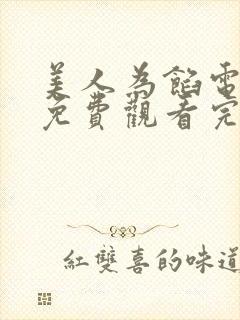 美人為餡電
免費觀看完
紅雙喜的味道